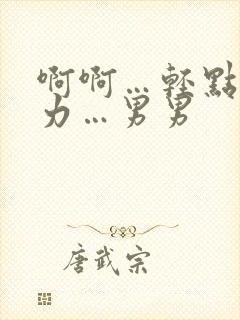 啊啊…輕點
力…男男
唐武宗